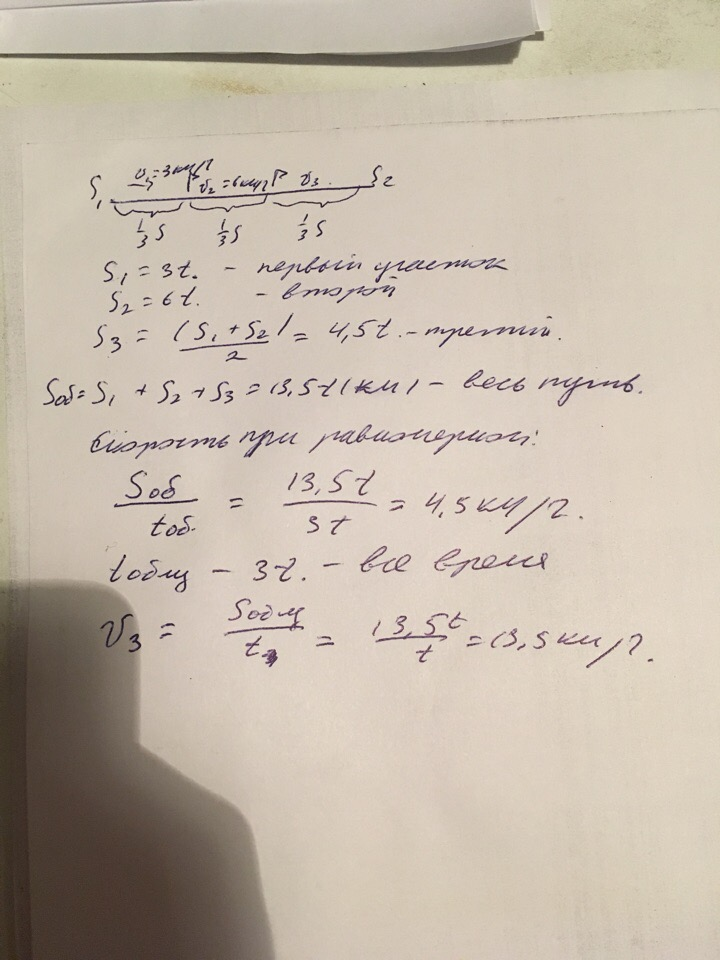 S₁ v₁=3км/ч v₂=6км/ч v₃. S₂
1/3 S 1/3 S 1/3 S
S₁ = 3t. - первый участок
S₂ = 6t. - второй
S₃ = (S₁ + S₂)/2 = 4,5t. - третий.
Sоб = S₁ + S₂ + S₃ = 13,5t (км) - весь путь.
Скорость при равномерной:
Sоб/tоб. = 13,5t/3t = 4,5 км/ч.
tобщ - 3t. - все время
v₃ = Sобщ/t₃ = 13,5t/t = 13,5 км/ч.